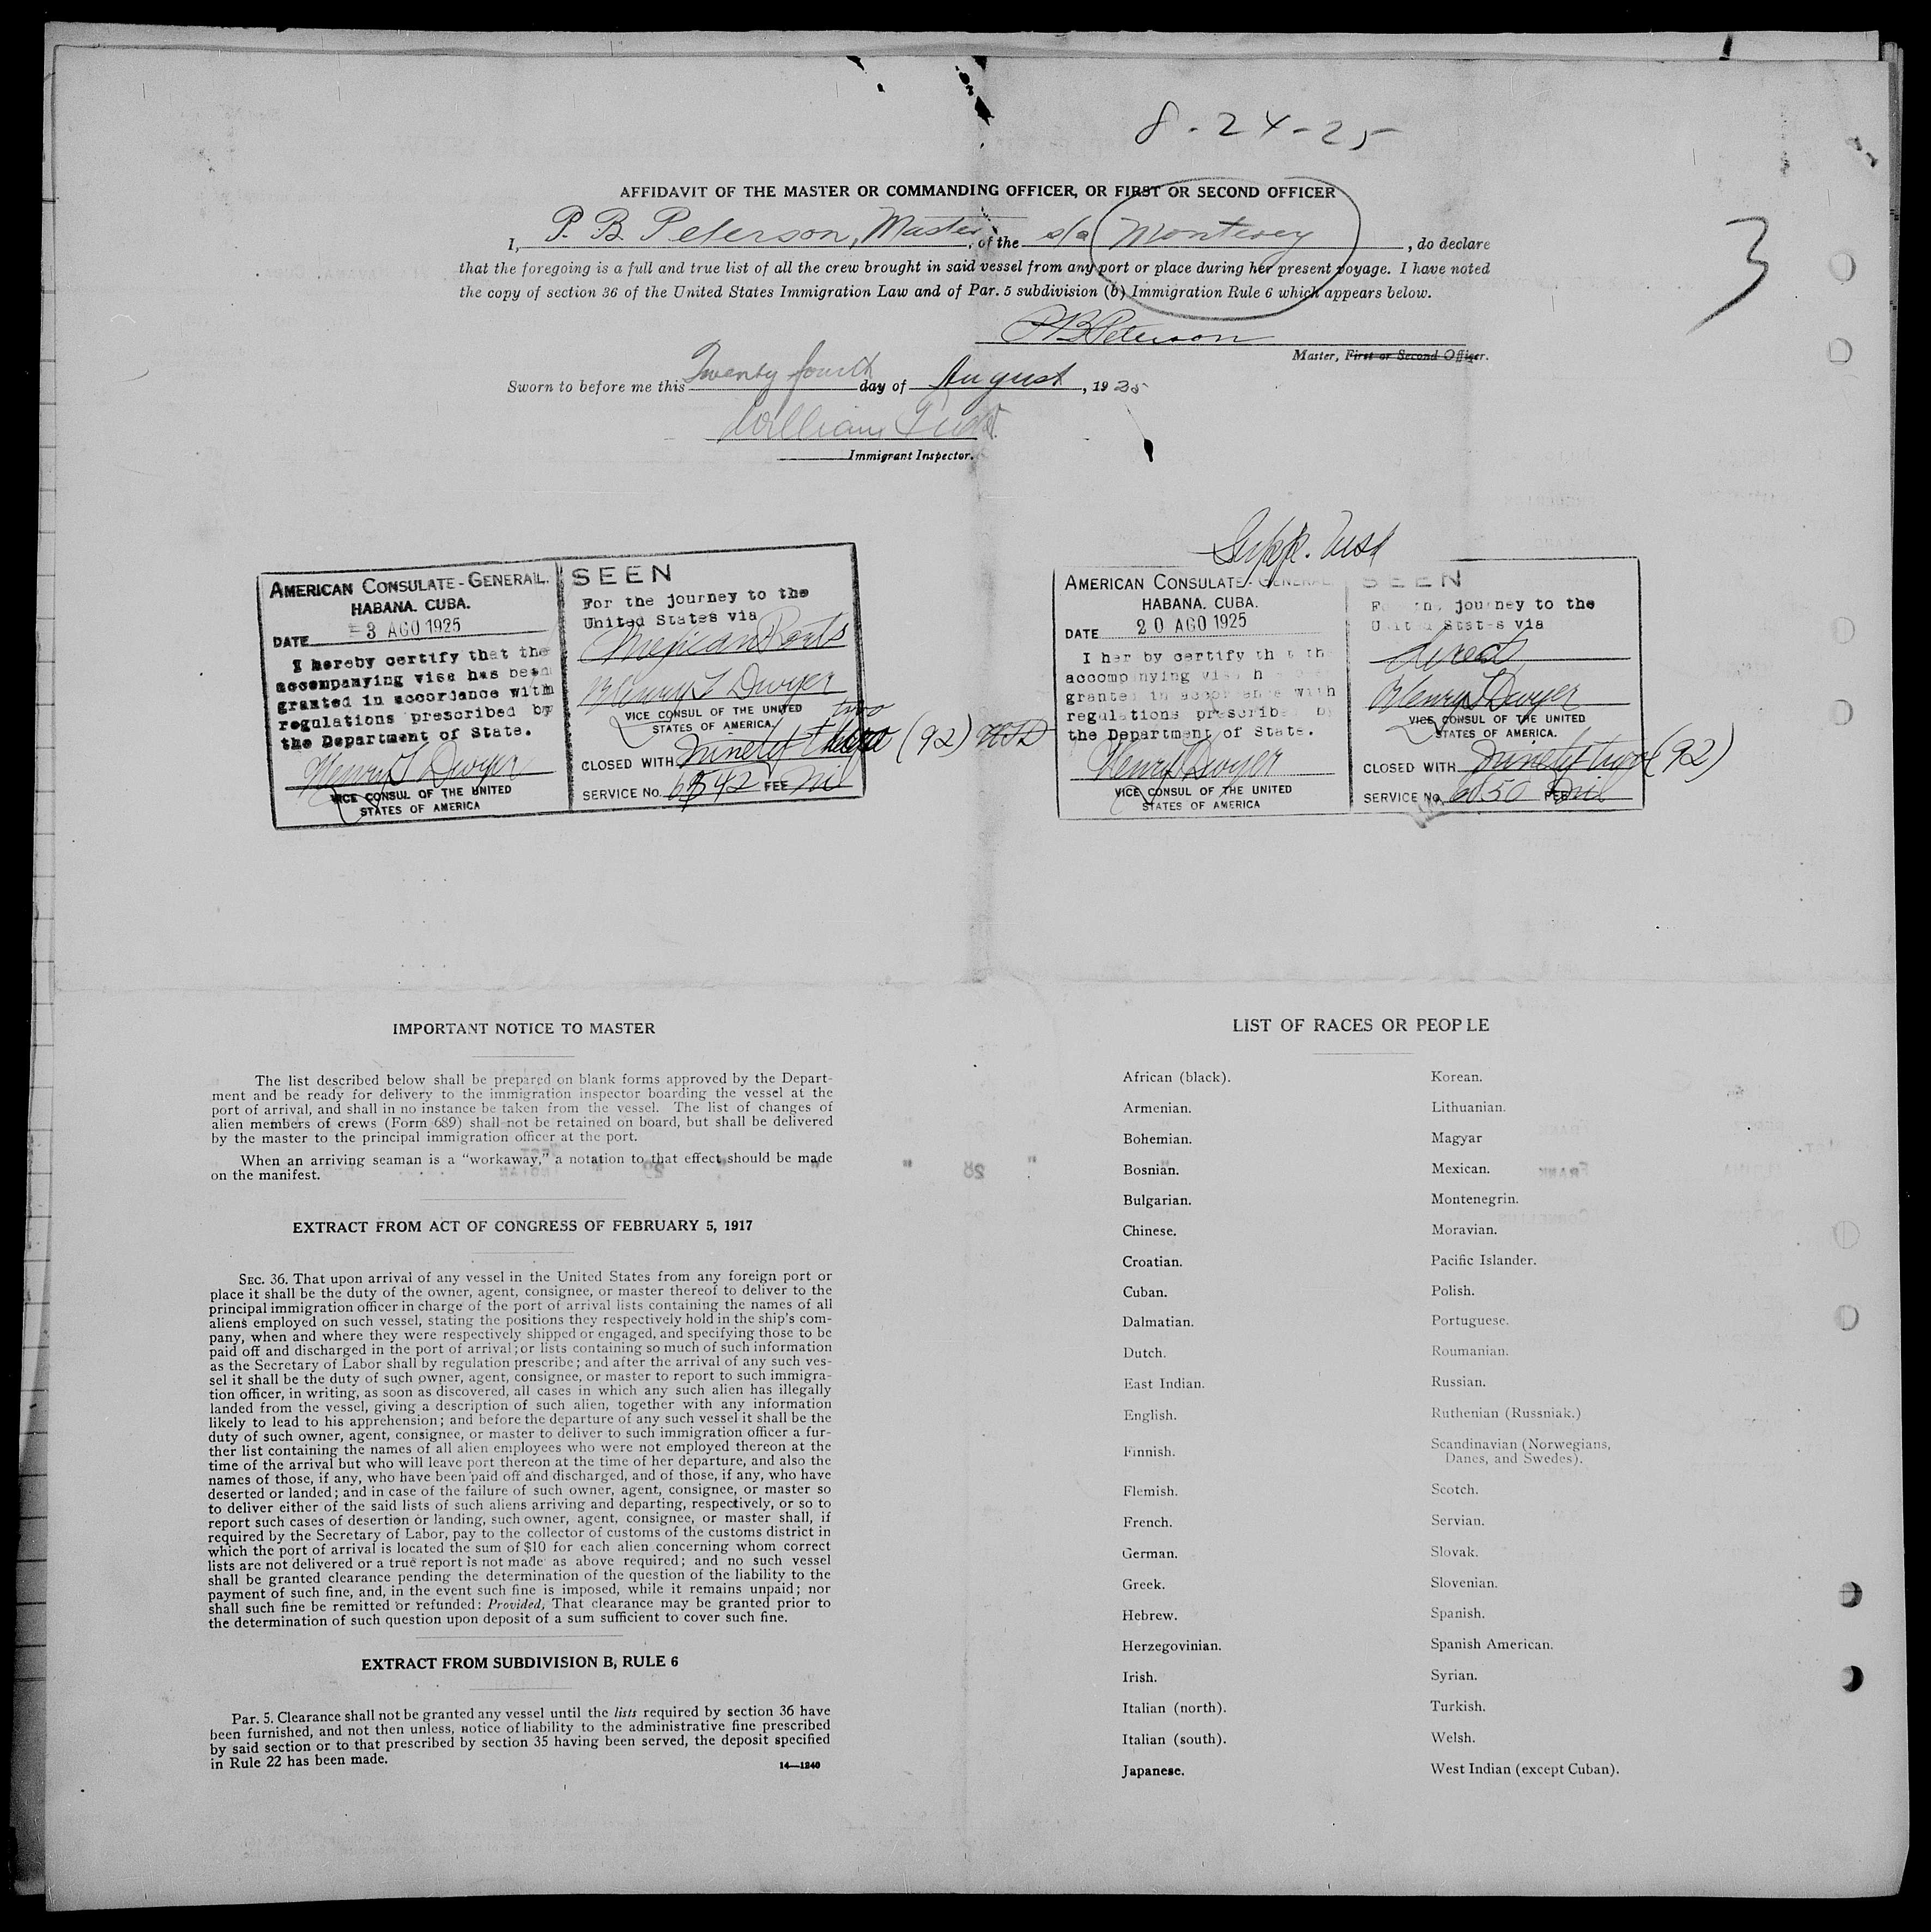 8-24-25
AFFIDAVIT OF THE MASTER OR COMMANDING OFFICER, OR FIRST OR SECOND OFFICER
I, P. B. Peterson, Master, of the s/s Monterey, do declare
that the foregoing is a full and true list of all the crew brought in said vessel from any port or place during her present voyage. I have noted
the copy of section 36 of the United States Immigration Law and of Par. 5 subdivision (b) Immigration Rule 6 which appears below.
3
P B Peterson
Master, First or Second Officer.
Sworn to before me this Twenty fourth day of August, 1925
William
Immigrant Inspector.
AMERICAN CONSULATE-GENERAL.
HABANA. CUBA.
DATE -3 AGO 1925
I hereby certify that the
accompanying visa has been
granted in accordance with
regulations prescribed by
the Department of State.
Henry T Dwyer
VICE CONSUL OF THE UNITED
STATES OF AMERICA
SEEN
For the journey to the
United States via
Mexican Ports
Henry T Dwyer
VICE CONSUL OF THE UNITED
STATES OF AMERICA.
two
CLOSED WITH ninety three (92) HTD
SERVICE No. 6542 FEE nil
Supp. Visa
AMERICAN CONSULATE-GENERAL
HABANA. CUBA.
DATE 20 AGO 1925
I her by certify th t th
accompanying visa h
granted in accordance with
regulations prescribe by
the Department of State.
Henry T Dwyer
VICE CONSUL OF THE UNITED
STATES OF AMERICA
SEEN
For the journey to the
United States via
direct
Henry T Dwyer
VICE CONSUL OF THE UNITED
STATES OF AMERICA.
CLOSED WITH ninety two (92)
SERVICE No. 6050 FEE nil
IMPORTANT NOTICE TO MASTER
The list described below shall be prepared on blank forms approved by the Depart-
ment and be ready for delivery to the immigration inspector boarding the vessel at the
port of arrival, and shall in no instance be taken from the vessel. The list of changes of
alien members of crews (Form 689) shall not be retained on board, but shall be delivered
by the master to the principal immigration officer at the port.
When an arriving seaman is a “workaway,” a notation to that effect should be made
on the manifest.
EXTRACT FROM ACT OF CONGRESS OF FEBRUARY 5, 1917
SEC. 36. That upon arrival of any vessel in the United States from any foreign port or
place it shall be the duty of the owner, agent, consignee, or master thereof to deliver to the
principal immigration officer in charge of the port of arrival lists containing the names of all
aliens employed on such vessel, stating the positions they respectively hold in the ship's com-
pany, when and where they were respectively shipped or engaged, and specifying those to be
paid off and discharged in the port of arrival; or lists containing so much of such information
as the Secretary of Labor shall by regulation prescribe; and after the arrival of any such ves-
sel it shall be the duty of such owner, agent, consignee, or master to report to such immigra-
tion officer, in writing, as soon as discovered, all cases in which any such alien has illegally
landed from the vessel, giving a description of such alien, together with any information
likely to lead to his apprehension; and before the departure of any such vessel it shall be the
duty of such owner, agent, consignee, or master to deliver to such immigration officer a fur-
ther list containing the names of all alien employees who were not employed thereon at the
time of the arrival but who will leave port thereon at the time of her departure, and also the
names of those, if any, who have been paid off and discharged, and of those, if any, who have
deserted or landed; and in case of the failure of such owner, agent, consignee, or master so
to deliver either of the said lists of such aliens arriving and departing, respectively, or so to
report such cases of desertion or landing, such owner, agent, consignee, or master shall, if
required by the Secretary of Labor, pay to the collector of customs of the customs district in
which the port of arrival is located the sum of $10 for each alien concerning whom correct
lists are not delivered or a true report is not made as above required; and no such vessel
shall be granted clearance pending the determination of the question of the liability to the
payment of such fine, and, in the event such fine is imposed, while it remains unpaid; nor
shall such fine be remitted or refunded: Provided, That clearance may be granted prior to
the determination of such question upon deposit of a sum sufficient to cover such fine.
EXTRACT FROM SUBDIVISION B, RULE 6
Par. 5. Clearance shall not be granted any vessel until the lists required by section 36 have
been furnished, and not then unless, notice of liability to the administrative fine prescribed
by said section or to that prescribed by section 35 having been served, the deposit specified
in Rule 22 has been made.
14—1240
LIST OF RACES OR PEOPLE
African (black).
Armenian.
Bohemian.
Bosnian.
Bulgarian.
Chinese.
Croatian.
Cuban.
Dalmatian.
Dutch.
East Indian.
English.
Finnish.
Flemish.
French.
German.
Greek.
Hebrew.
Herzegovinian.
Irish.
Italian (north).
Italian (south).
Japanese.
Korean.
Lithuanian.
Magyar
Mexican.
Montenegrin.
Moravian.
Pacific Islander.
Polish.
Portuguese.
Roumanian.
Russian.
Ruthenian (Russniak.)
Scandinavian (Norwegians,
Danes, and Swedes).
Scotch.
Servian.
Slovak.
Slovenian.
Spanish.
Spanish American.
Syrian.
Turkish.
Welsh.
West Indian (except Cuban).